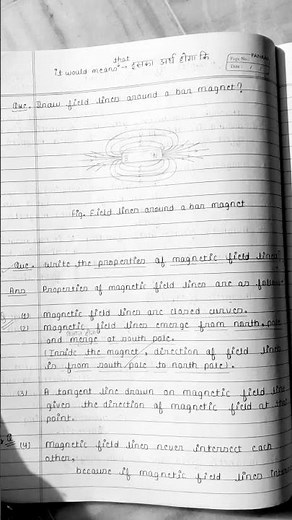 that
it would means → इसका अर्थ होगा कि
Page No.:
Date
Que. Draw field lines around a bar magnet?
Fig. Field lines around a bar magnet
Que. Write the properties of magnetic field lines
Ans Properties of magnetic field lines are as
(1) Magnetic field lines are closed curves.
(2) Magnetic field lines emerge from north pole
and merge at south pole.
(Inside the magnet, direction of field lines
is from south pole to north pole).
(3) A tangent line drawn on magnetic field line
gives the direction of magnetic field at
point.
(4) Magnetic field lines never intersect each
other,
because if magnetic field lines